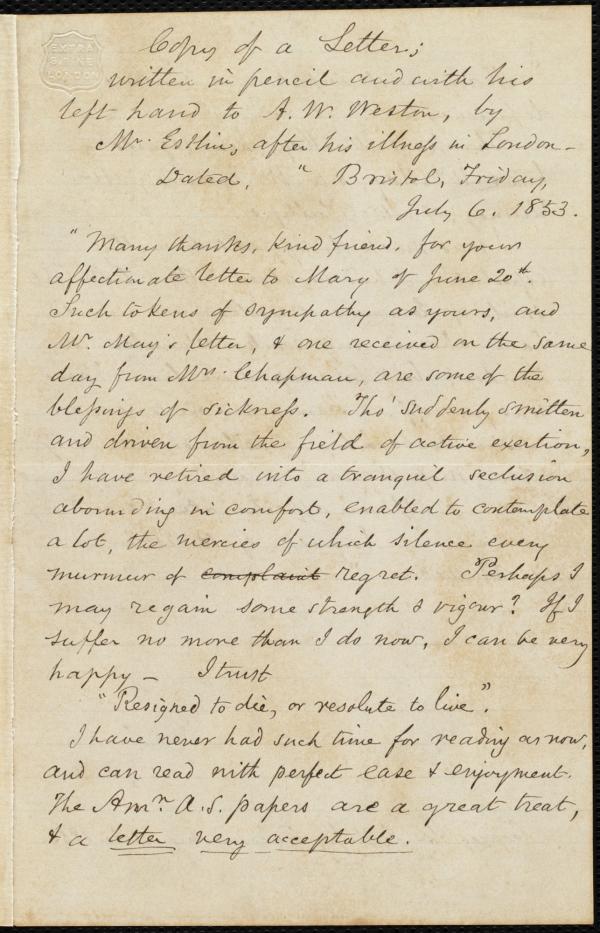 EXTRA
SATINE
LONDON
Copy of a Letter;
written in pencil and with his
left hand to A. W. Weston, by
Mr. Estlin, after his illness in London -
Dated, " Bristol, Friday,
July 6. 1853.
"Many thanks, kind friend, for your
affectionate letter to Mary of June 20th.
Such tokens of sympathy as yours, and
Mr. May's letter, & one received on the same
day from Mrs. Chapman, are some of the
blessings of sickness. Tho' suddenly smitten
and driven from the field of active exertion,
I have retired into a tranquil seclusion
abounding in comfort, enabled to contemplate
a lot, the mercies of which silence every
murmur of complaint regret. Perhaps I
may regain some strength & vigour? If I
suffer no more than I do now, I can be very
happy - I trust
"Resigned to die, or resolute to live".
I have never had such time for reading as now,
and can read with perfect ease & enjoyment.
The Amn. A. S. papers are a great treat,
& a letter very acceptable.